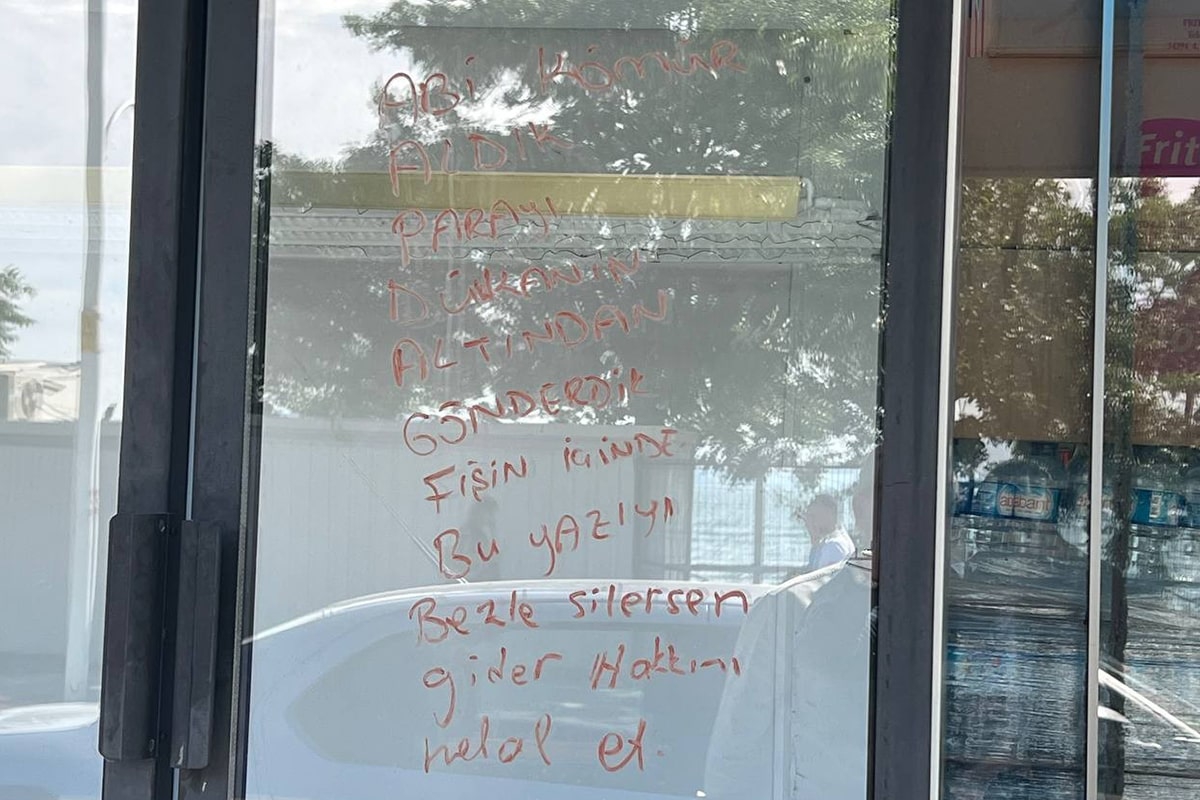 ABİ KÖMÜR
ALDIK
PARAYI
DÜKANIN
ALTINDAN
GÖNDERDİK
FİŞİN İÇİNDE
Bu YAZIYI
Bezle silersen
gider Hakkını
helal et.
Frit